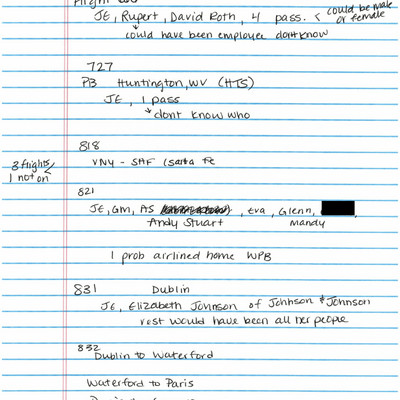 JE, Rupert, David Roth, 4 pass. < could be male or female
could have been employee dont know
727
PB Huntington, WV (HTS)
JE, 1 pass
dont know who
818
3 flights 1 not on
VNY - SAF (santa fe
821
JE, GM, AS , Eva, Glenn,
Andy Stuart mandy
1 prob airlined home WPB
831 Dublin
JE, Elizabeth Johnson of Johnson & Johnson
rest would have been all her people
832
Dublin to Waterford
Waterford to Paris